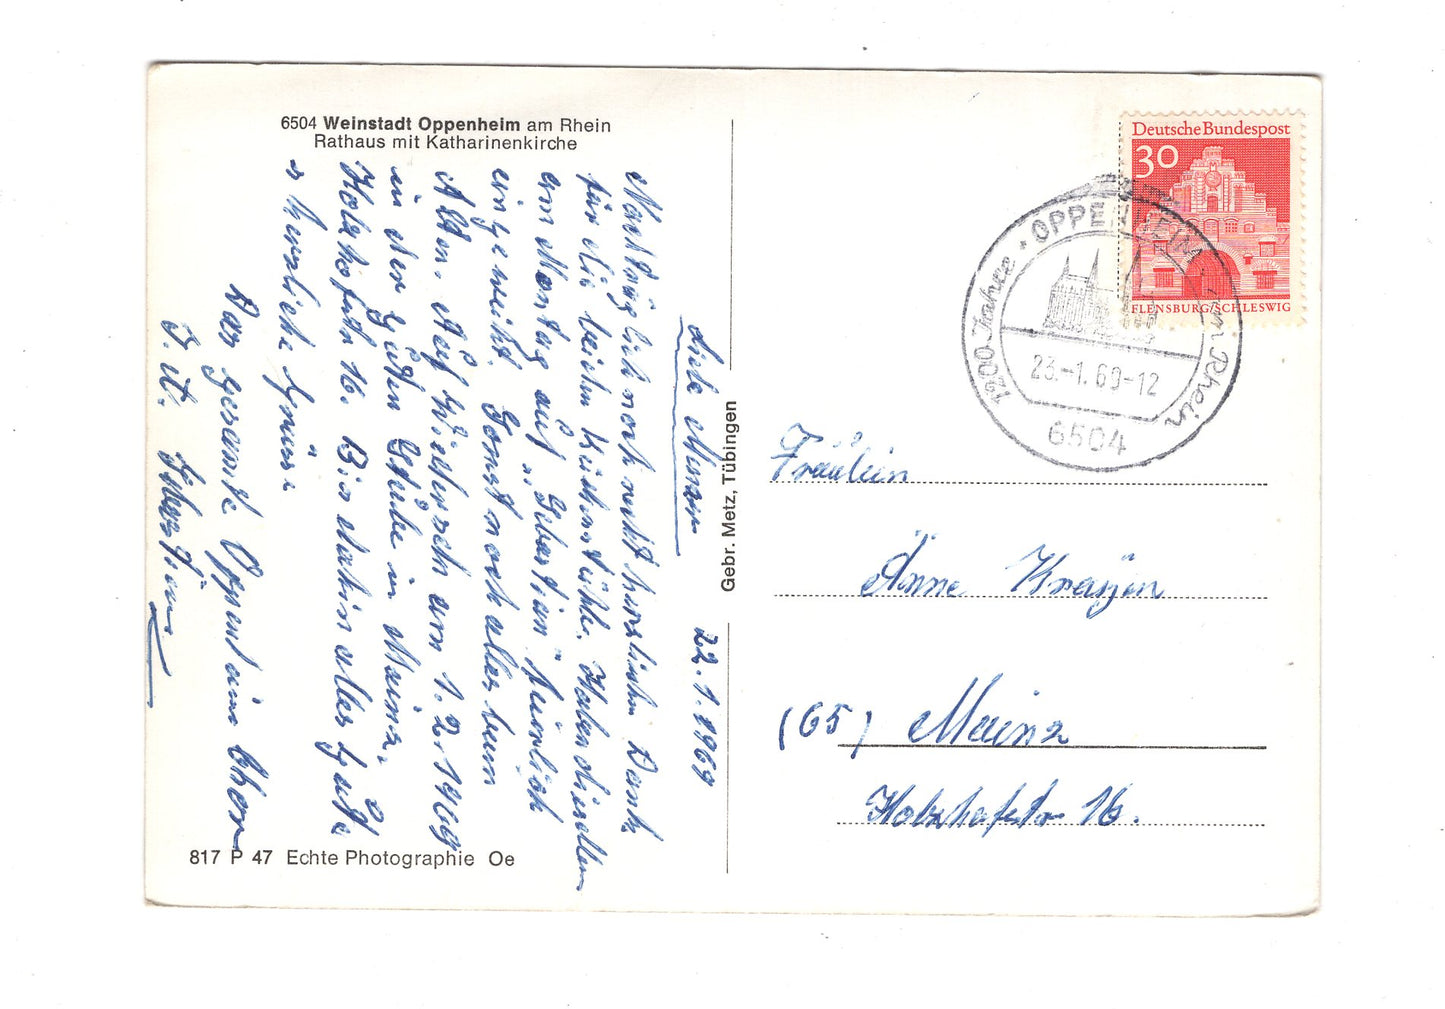 6504 Weinstadt Oppenheim am Rhein
Rathaus mit Katharinenkirche
22.1.1969
Liebe Änne
Nachträglich noch recht herzlichen Dank
für die beiden Küchenstühle. Haben dieselben
am Montag auf "Sebastian" feierlich
eingeweiht. Sonst noch alles beim
Alten. Auf Wiedersehn am 1.2.1969
in der guten Stube in Mainz.
Holzhofstr 16. Bis dahin alles Gute
u herzliche Grüsse
Das gesamte Oppenheim
I. A.
817 P 47 Echte Photographie Oe
Gebr. Metz, Tübingen
Deutsche Bundespost
30
FLENSBURG/SCHLESWIG
1200 Jahre · OPPENHEIM am Rhein
23.-1.69-12
6504
Fräulein
Änne
(65) Mainz
Holzhofstr 16.